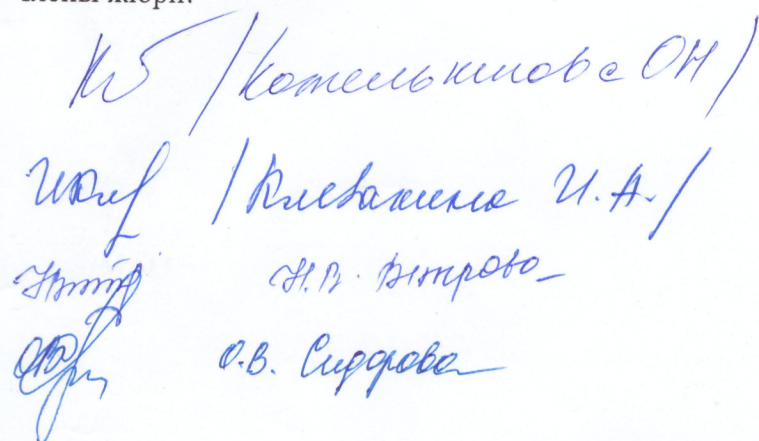 члены жюри:
/Котельникова ОН/
/Клевакина И.А./
Н.В. Ветрова
О.В. Сидорова